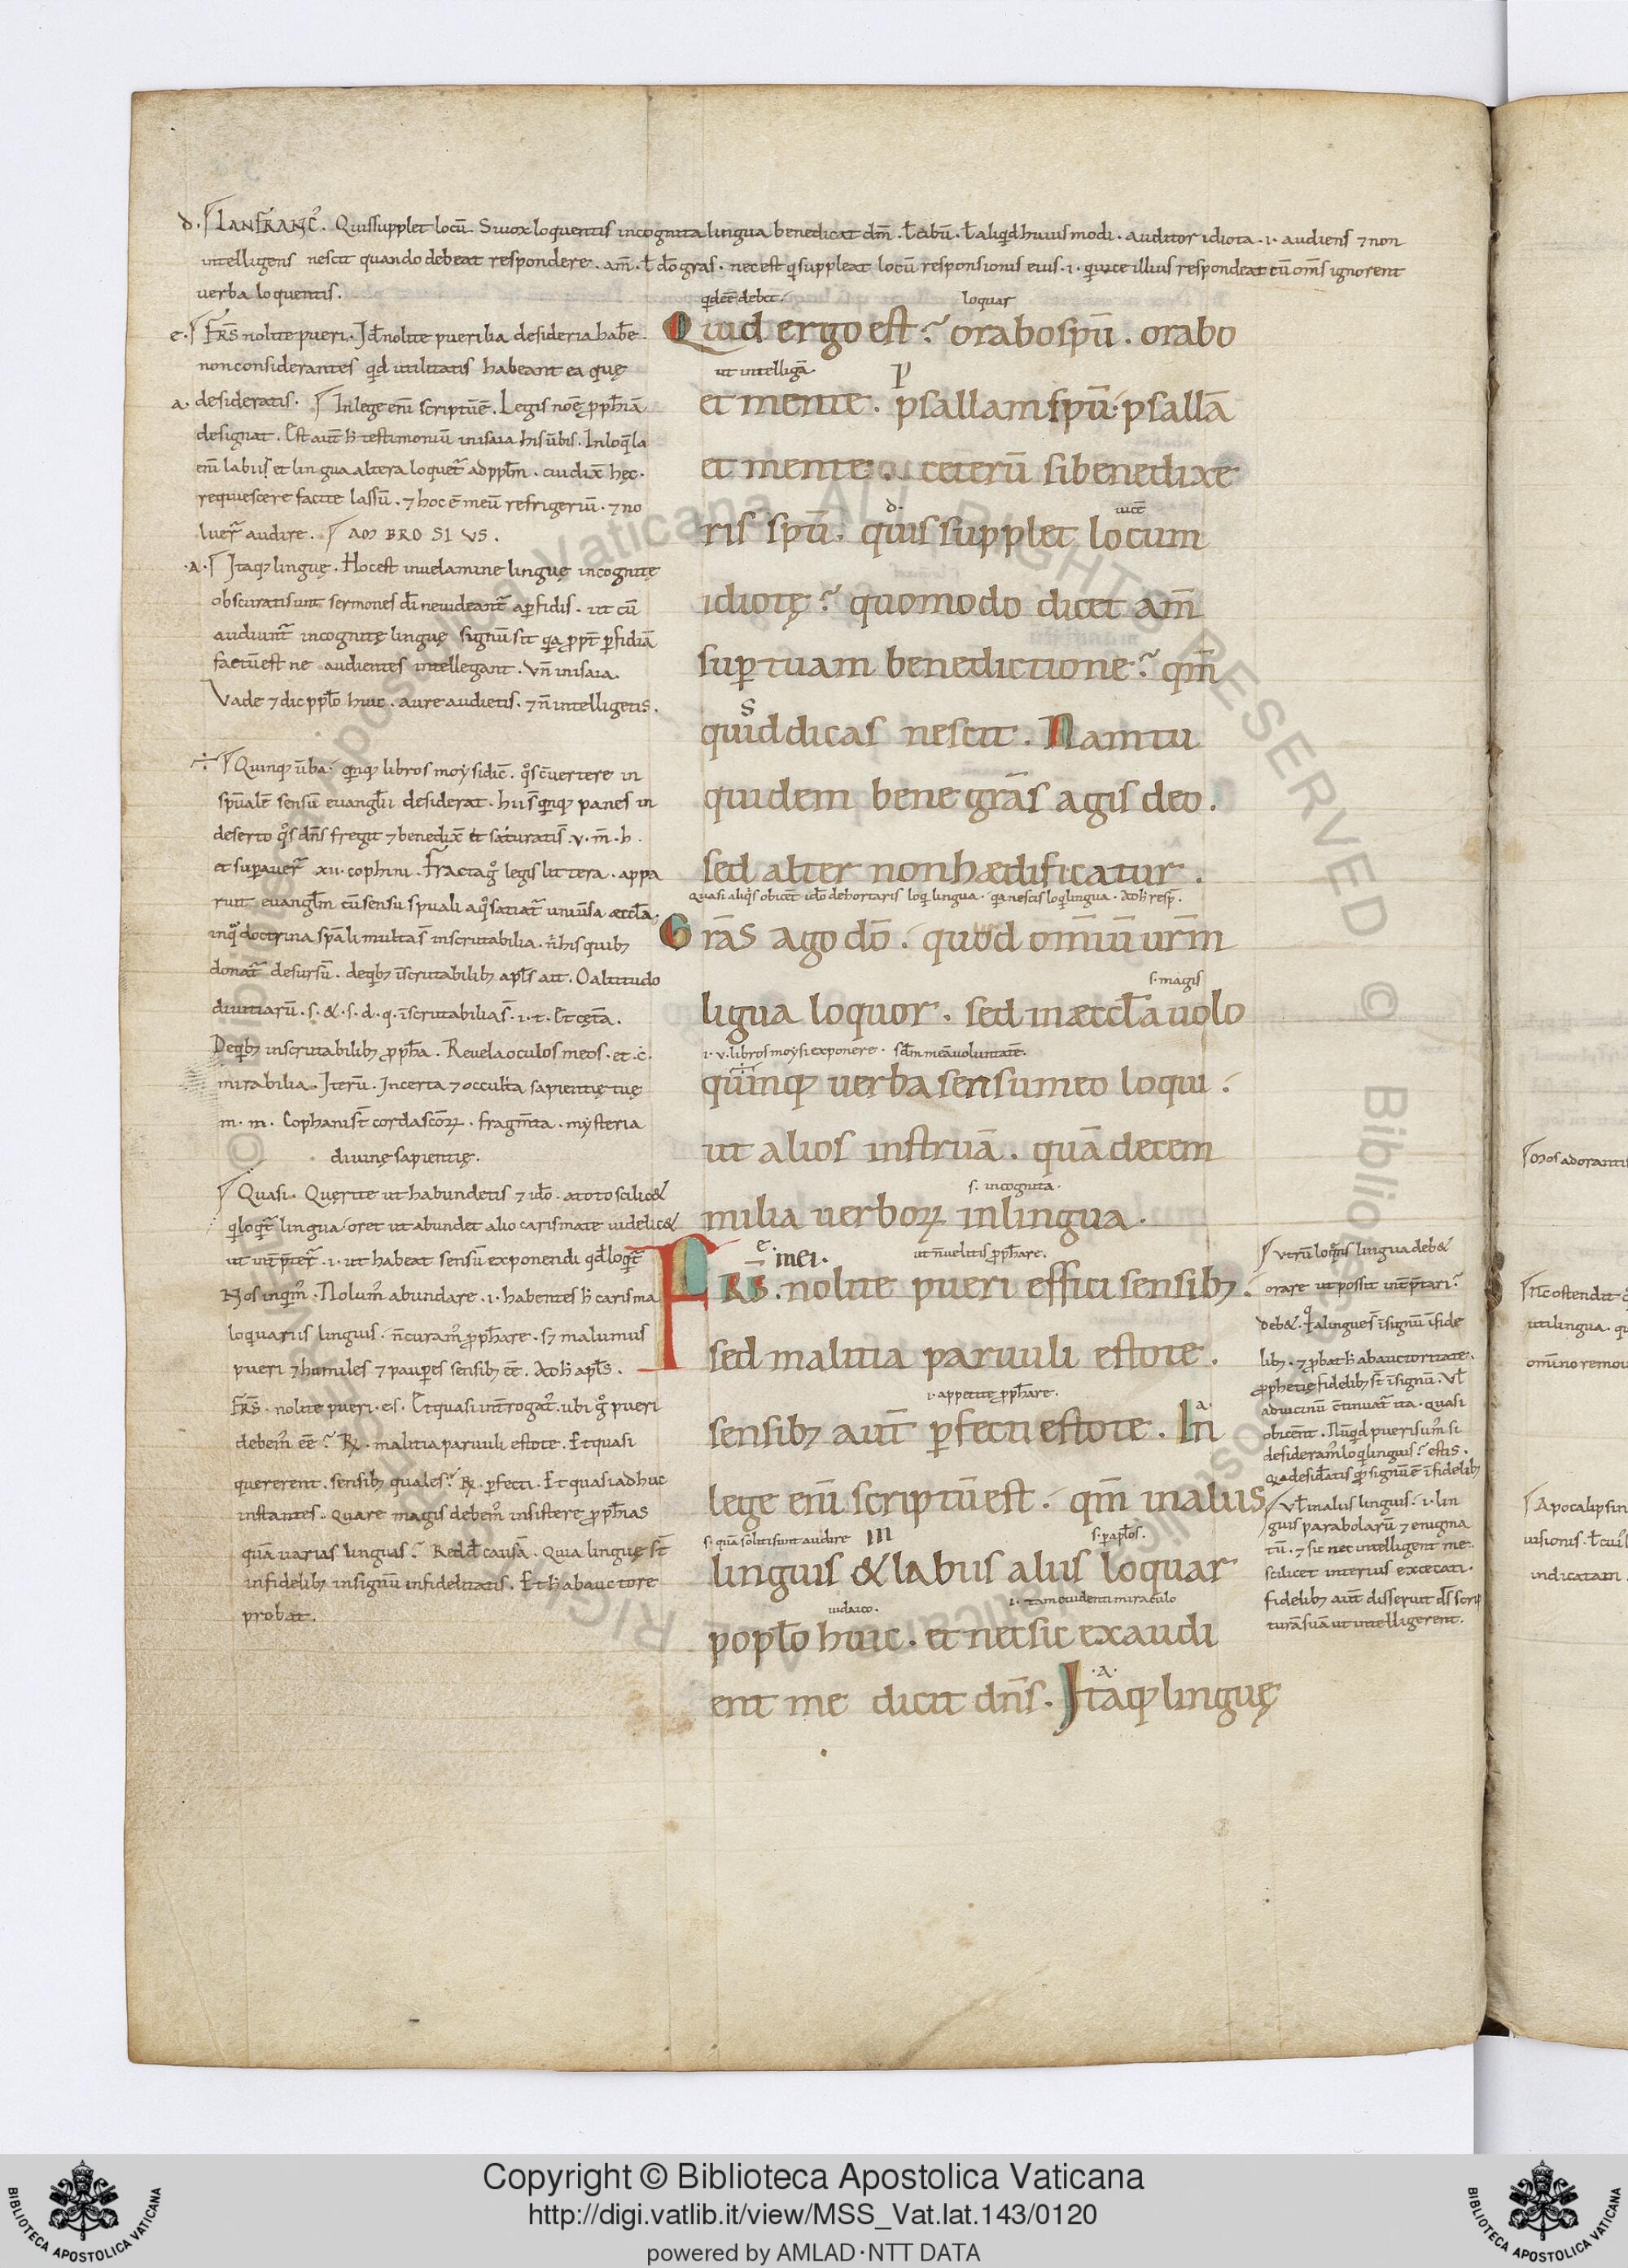 d. LANFRANC᷒. Quis supplet locū. Si uox loquentis incognita lingua benedicat dm̄. ł cibū. ł aliqd huius modi. auditor idiota .i. audiens ⁊ non
intelligens nescit quando debeat respondere. am̄. ł dō grās. nec est q suppleat locū responsionis eius .i. q uice illius respondeat cū oms ignorent
uerba loquentis.
e. FRS̄ nolite pueri. Id nolite puerilia desideria habe
non considerantes qd utilitatis habeant ea quę
a. desideratis. In lege eni scriptū ē. Legis noē ꝓph̄iā
designat. Est aut̄ h testimoniū in isaia his ūbis. In loq̄la
eni labiis et lingua altera loquet᷒ ad ppl̄m. cui dix̄ hęc.
requiescere facite lassū. ⁊ hoc ē meū refrigeriū. ⁊ no
luer᷒ audire. AM BRO SI VS.
.a. Itaq; linguę. Hoc est in uelamine linguę incognitę
obscurati sunt sermones dī ne uideant᷒ a ꝑfidis. ut cū
audiunt᷒ incognitę linguę signū sit qa ꝓpt̄ ꝑfidiā
factū est ne audientes intellegant. Vn̄ in isaia.
Vade ⁊ dic ppl̄o huic. aure audietis. ⁊ n̄ intelligetis.
Quinq; ūba. qnq; libros moysi dic̄. qͦs c̄uertere in
spūalē sensū euangl̄ii desiderat. hii s̄ qnq; panes in
deserto qͦs dn̄s fregit ⁊ benedix̄ et saturati s̄ .v. m̄. h.
et supauer᷒ xii. cophini. Fracta gͦ legis littera. appa
ruit euangl̄m cū sensu spuali a qͦ satiat᷒ uniūsa æccl̄a.
in qͦ doctrina spāli multa s̄ inscrutabilia. n̄ his quib;
donat᷒ desursū. de qb; īscrutabilib; apl̄s ait. O altitudo
diuitiarū .s. & .s. d. q. īscrutabilia s̄ .i. t. Et cęt̄a.
De qb; inscrutabilib; ꝓph̄a. Reuela oculos meos. et .c̄.
mirabilia. Iterū. Incerta ⁊ occulta sapientię tuę
m. m. Cophani s̄t corda sc̄oꝝ. fragm̄ta. mysteria
diuinę sapientię.
Quasi. Quęrite ut habundetis ⁊ idō. a toto scilic&
q loqt᷒ lingua oret ut abundet alio carismate uidelic&
ut int̄p̄ter᷒ .i. ut habeat sensū exponendi qd loqt᷒
Nos inqm᷒. Nolum᷒ abundare .i. habentes h carisma
loqua riis linguis. n̄ curam᷒ ꝓph̄are. s; malumus
pueri ⁊ humiles ⁊ pauꝑes sensib; eē. Ad h apl̄s.
FRS̄. nolite pueri. es. Et quasi int̄rogat᷒. ubi gͦ pueri
debem᷒ eē? R̄. malitia paruuli estote. Et quasi
quererent. sensib; quales? R̄. ꝑfecti. Et quasi adhuc
instantes. quare magis debem᷒ insistere ꝓph̄ias
quā uarias linguis? Redd̄ causā. Quia linguę s̄t
infidelib; in signū infidelitatis. Et h ab auctore
probat.
qd eē debet. loquar
Quid ergo est? orabo spū. orabo
ut intelligā
et mente. psallam spū. psallā
et mente. ceterū si benedixe
d. uicē
ris spū. quis supplet locum
idiotę? quomodo dicit am̄
suꝑ tuam benedictione? qm̄
s
quid dicas nescit. Nam tu
quidem bene grās agis deo.
sed alter non hædificatur.
quasi aliqs obicēt idō dehortaris loq lingua. qa nescis loq lingua. ad h resp̄.
Grās ago dō. quod omīū urm̄
ligua loquor. sed in æccl̄a uolo
s. magis
i. v. libros moysi exponere. sd̄m meā uoluntatē.
quinq; uerba sensu meo loqui.
ut alios instruā. quā decem
s. incognita.
milia uerboꝝ in lingua.
e mei. ut n̄ uelitis ꝓph̄are.
FRS̄. nolite pueri effici sensib;.
sed malitia paruuli estote.
i. appetitę ꝓph̄are.
sensib; aut̄ ꝑfecti estote. In
lege eni scriptū est. qm̄ in aliis
s. quā soliti sunt audire III s. ꝑ apl̄os.
linguis & labiis aliis loquar
iudaico. i. tam euidenti miraculo
popl̄o huic. et nec sic exaudi
.a.
ent me dicit dn̄s. Itaq; linguę
utrū loqns lingua deb&
orare ut possit int̄p̄tari?
deb&. Qͥa linguę s̄ ī signū īfide
lib;. ⁊ ꝓbat h ab auctoritate.
prophetię fidelib; s̄t ī signū. Vł
ad uicinū c̄tinuat᷒ ita. quasi
obicēnt. Nūqd pueri sum᷒ si
desideram᷒ loq linguis? estis.
Qa desidatis ꝓ signū ē īfidelib;
Vł in aliis linguis. i. lin
guis parabolarū ⁊ enigma
tū. ⁊ sic nec intelligent me.
scilicet interius excecati.
fidelib; aut̄ disseruit ds̄ scrip
turā suā ut intelligerent.
Mos adorantis
Nc̄ ostendit
uti lingua. q
omīno remou
Apocalipsin
uisionis. ł cui
indicatam.
Copyright © Biblioteca Apostolica Vaticana
http://digi.vatlib.it/view/MSS_Vat.lat.143/0120
powered by AMLAD·NTT DATA
BIBLIOTECA APOSTOLICA VATICANA
BIBLIOTECA APOSTOLICA VATICANA